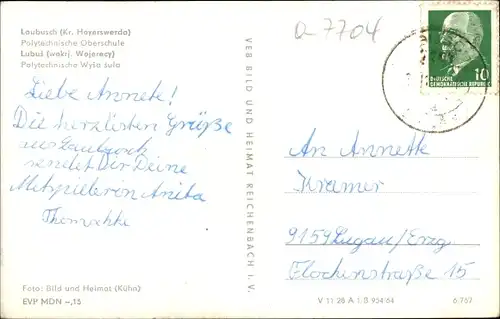 Laubusch (Kr. Hoyerswerda)
Polytechnische Oberschule
Lubuš (wokrj. Wojerecy)
Polytechniske Wyša šula
a 7704
Liebe Annete!
Die herzlisten Grüße
aus Laubusch
sendet Dir Deine
Mitspielerin Anita
Foto: Bild und Heimat (Kühn)
EVP MDN -,15
VEB BILD UND HEIMAT REICHENBACH I. V.
DEUTSCHE
DEMOKRATISCHE REPUBLIK
10
An Annette
Kramer
9159 Lugau/Erzg
Flockenstraße 15
V 11 28 A 1 B 954/64
6 767